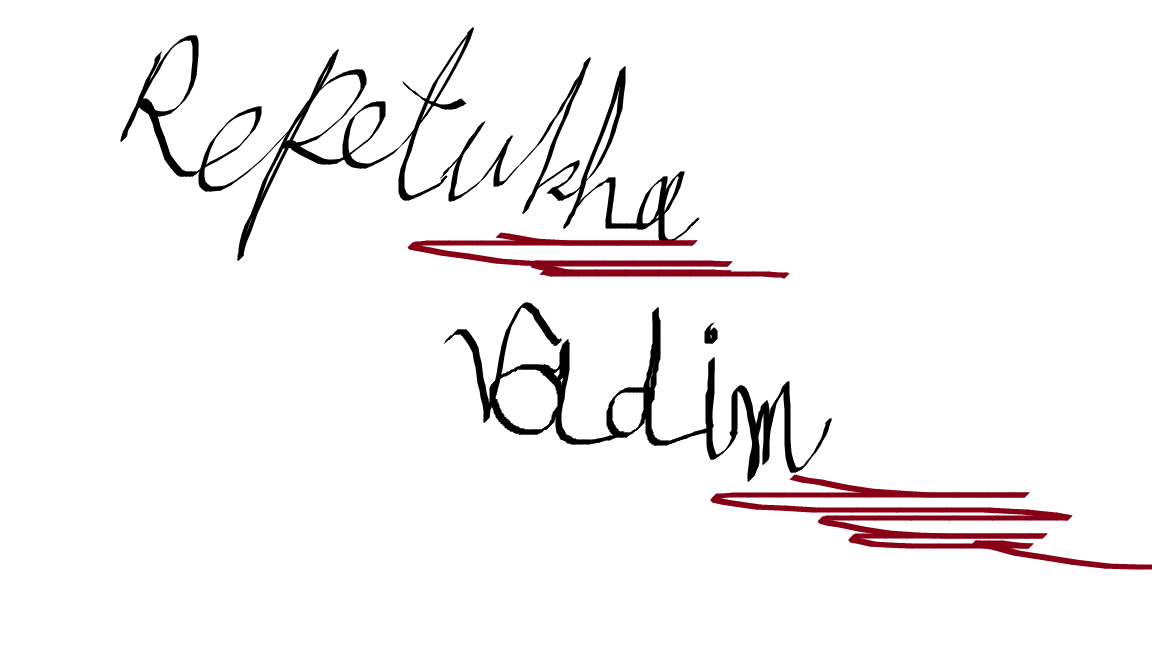 Repetukha
Vadim